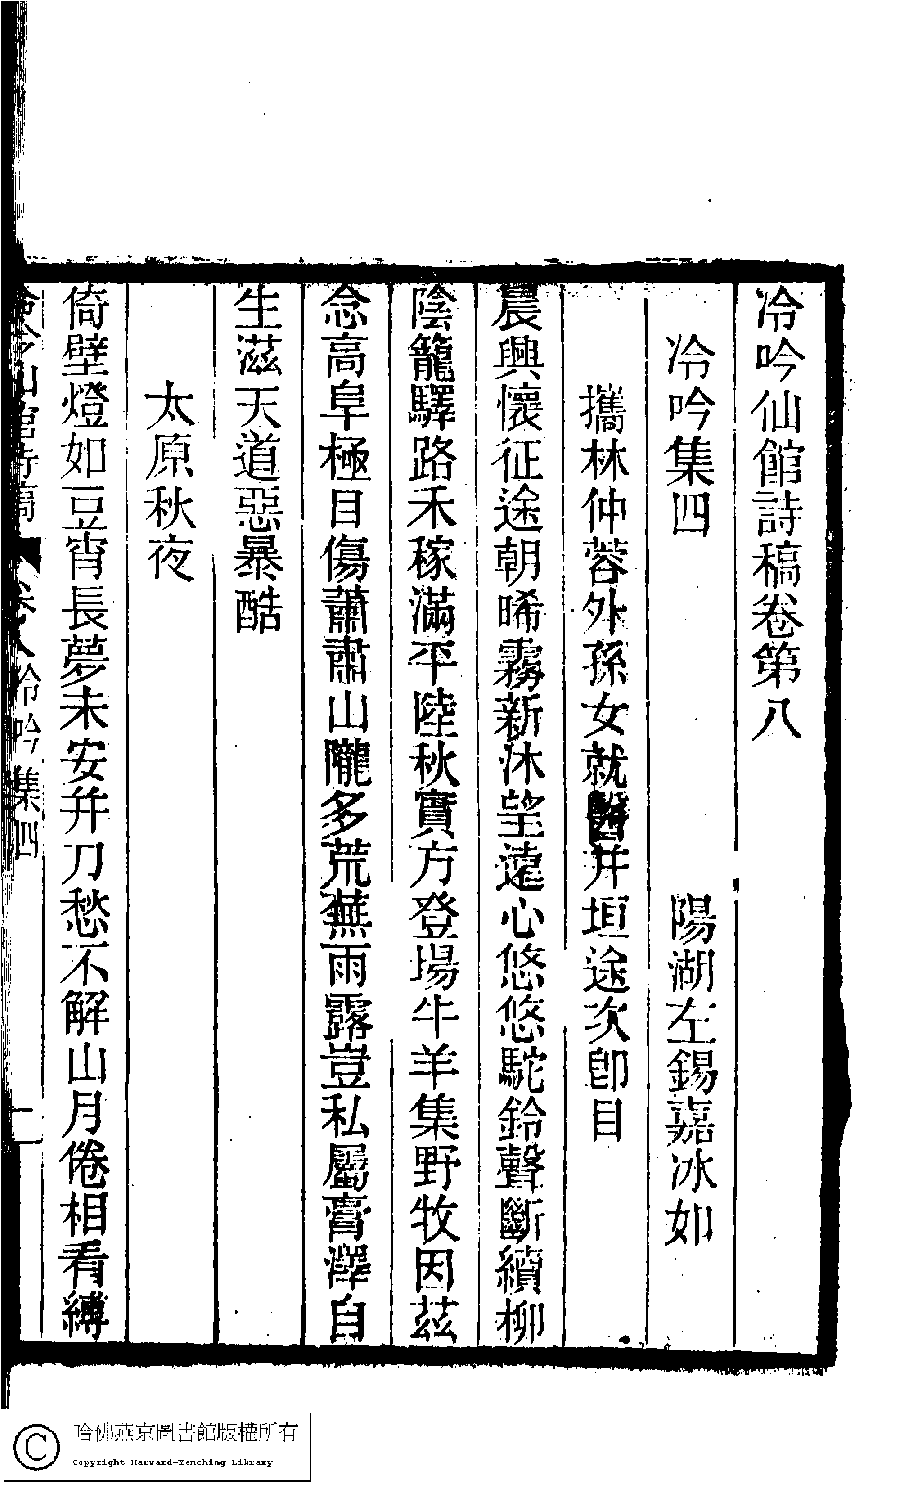 冷吟仙館詩稿卷第八
冷吟集四　陽湖左錫嘉冰如
攜林仲蓉外孫女就醫并垣途次卽目
晨興懷征途朝晞霧新沐望遠心悠悠駝鈴聲斷續柳
陰籠驛路禾稼滿平陸秋實方登場牛羊集野牧因茲
念高阜極目傷蕭肅山隴多荒蕪雨露豈私屬膏澤自
生滋天道惡暴酷
太原秋夜
倚壁燈如豆宵長夢未安并刀愁不解山月倦相看縛
冷吟仙館詩稿　卷八　冷吟集四　一
哈佛燕京圖書館版權所有
Copyright Harvard-Yenching Library